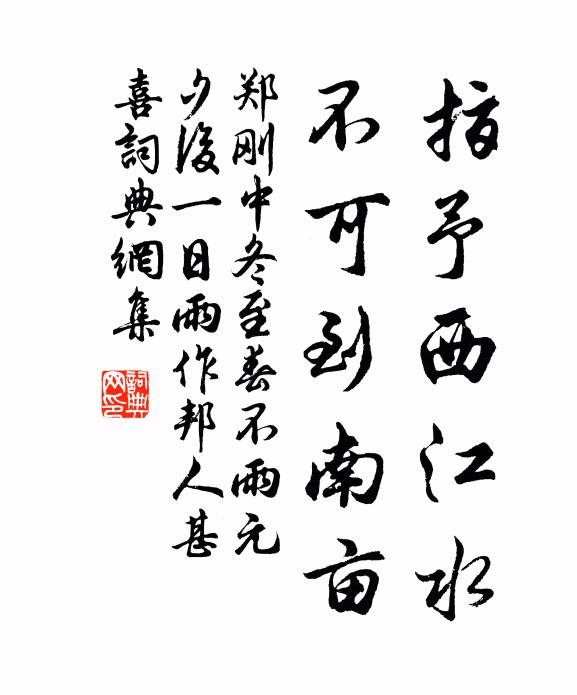 指予西江水
不可到南亩
郑刚中冬至春不雨元
夕后一日雨作邦人甚
喜詞典網集
詞典网印